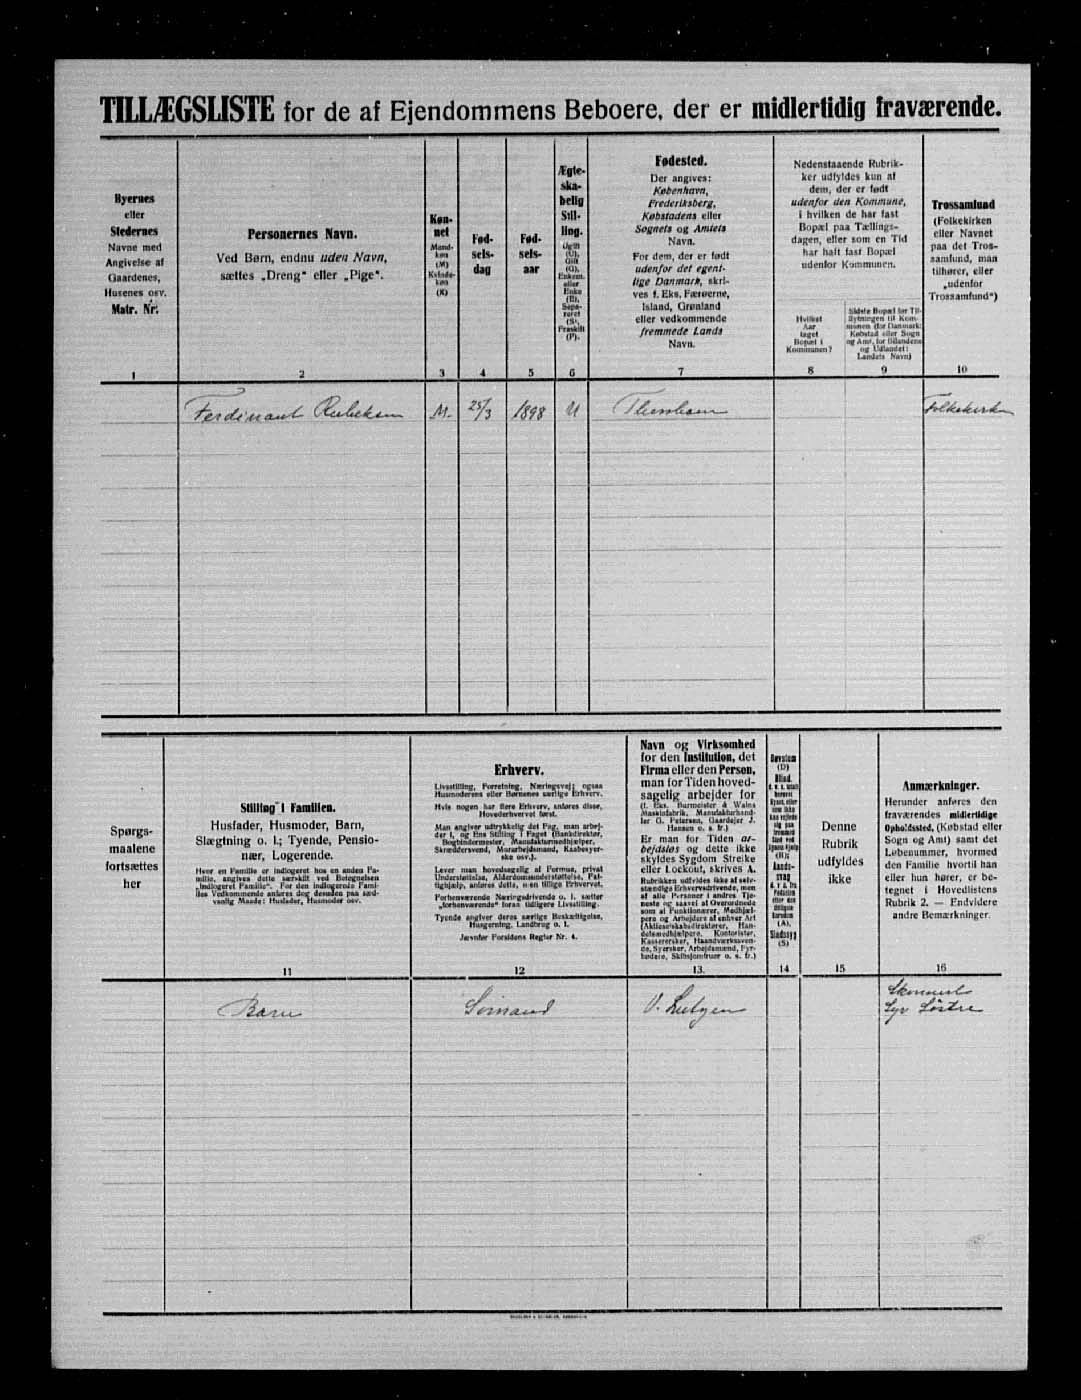 TILLÆGSLISTE for de af Ejendommens Beboere, der er midlertidig fraværende.
Byernes
eller
Stedernes
Navne med
Angivelse af
Gaardenes,
Husenes osv.
Matr. Nr.
1
Personernes Navn.
Ved Børn, endnu uden Navn,
sættes „Dreng“ eller „Pige“.
2
Køn-
net
Mand-
køn
(M)
Kvinde-
køn
(K)
3
Fød-
sels-
dag
4
Fød-
sels-
aar
5
Ægte-
ska-
belig
Stil-
ling.
Ugift
(U),
Gift
(G),
Enkem.
eller
Enke
(E),
Sepa-
reret
(S),
Fraskilt
(F).
6
Fødested.
Der angives:
København,
Frederiksberg,
Købstadens eller
Sognets og Amtets
Navn.
For dem, der er født
udenfor det egent-
lige Danmark, skri-
ves f. Eks. Færøerne,
Island, Grønland
eller vedkommende
fremmede Lands
Navn.
7
Nedenstaaende Rubrik-
ker udfyldes kun af
dem, der er født
udenfor den Kommune,
i hvilken de har fast
Bopæl paa Tællings-
dagen, eller som en Tid
har haft fast Bopæl
udenfor Kommunen.
Hvilket
Aar
taget
Bopæl i
Kommunen?
8
Sidste Bopæl før Til-
flytningen til Kom-
munen (for Danmark:
Købstad eller Sogn
og Amt, for Bilandene
og Udlandet:
Landets Navn)
9
Trossamfund
(Folkekirken
eller Navnet
paa det Tros-
samfund, man
tilhører, eller
„udenfor
Trossamfund“)
10
Ferdinant
M.
25/3
1898
U
Folkekirken
Spørgs-
maalene
fortsættes
her
Stilling i Familien.
Husfader, Husmoder, Barn,
Slægtning o. l.; Tyende, Pensio-
nær, Logerende.
Hvor en Familie er indlogeret hos en anden Fa-
milie, angives dette særskilt ved Betegnelsen
„Indlogeret Familie“. For den indlogerede Fami-
lies Vedkommende anføres dog desuden paa sæd-
vanlig Maade: Husfader, Husmoder osv.
11
Erhverv.
Livsstilling, Forretning, Næringsvej; ogsaa
Husmoderens eller Børnenes særlige Erhverv.
Hvis nogen har flere Erhverv, anføres disse,
Hovederhvervet først.
Man angiver udtrykkelig det Fag, man arbej-
der i, og Ens Stilling i Faget (Bankdirektør,
Bogbindermester, Manufakturmedhjælper,
Skræddersvend, Murarbejdsmand, Kaabesyer-
ske osv.).
Lever man hovedsagelig af Formue, privat
Understøttelse, Alderdomsunderstøttelse, Fat-
tighjælp, anføres dette, men tillige Erhvervet.
Forhenværende Næringsdrivende o. l. sætter
„forhenværende“ foran tidligere Livsstilling.
Tyende angiver deres særlige Beskæftigelse,
Husgerning, Landbrug o. l.
Jævnfør Forsidens Regler Nr. 4.
12
Navn og Virksomhed
for den Institution, det
Firma eller den Person,
man for Tiden hoved-
sagelig arbejder for
(f. Eks. Burmeister & Wains
Maskinfabrik, Manufakturhand-
ler G. Petersen, Gaardejer J.
Hansen o. s. fr.)
Er man for Tiden ar-
bejdsløs og dette ikke
skyldes Sygdom Strejke
eller Lockout, skrives A.
Rubrikken udfyldes ikke af selv-
stændige Erhvervsdrivende, men
af alle Personer i andres Tje-
neste og saavel af Overordnede
som af Funktionærer, Medhjæl-
pere og Arbejdere af enhver Art
(Aktieselskabsdirektører, Han-
delsmedhjælpere, Kontorister,
Kassererske, Haandværkssven-
de, Syersker, Arbejdsmænd, Fyr-
bødere, Skibsjomfruer o. s. fr.)
13.
Døvstum
(D)
Blind,
14
Denne
Rubrik
udfyldes
ikke
15
Anmærkninger.
Herunder anføres den
fraværendes midlertidige
Opholdssted, (Købstad eller
Sogn og Amt) samt det
Løbenummer, hvormed
den Familie hvortil han
eller hun hører, er be-
tegnet i Hovedlistens
Rubrik 2. — Endvidere
andre Bemærkninger.
16
Barn
Sømand